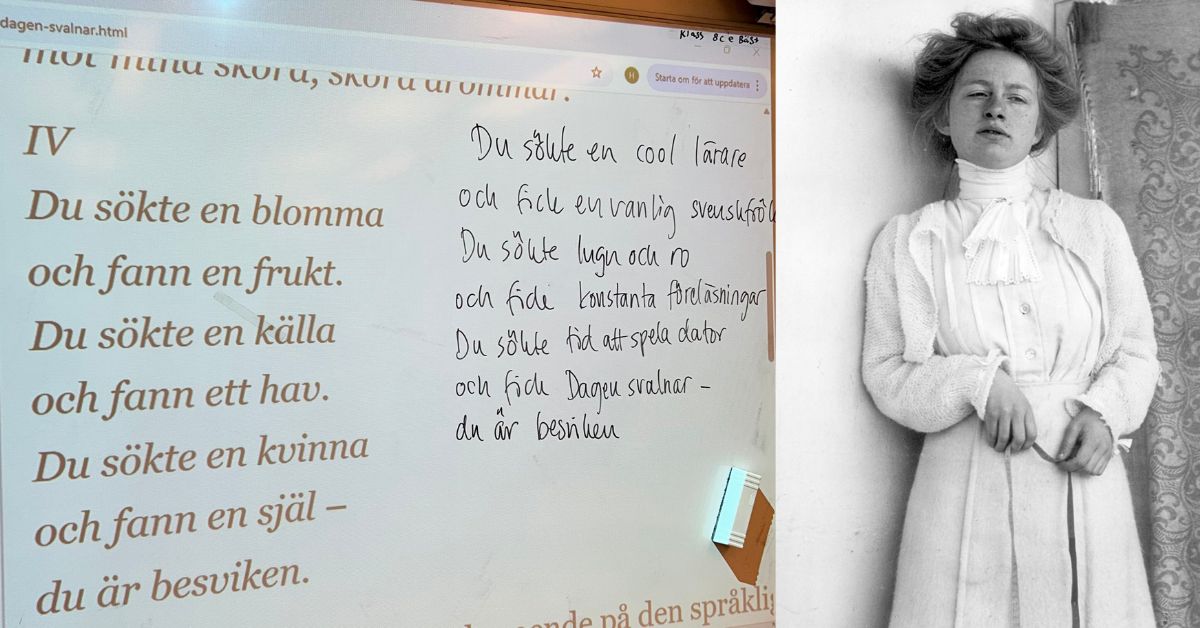 dagen-svalnar.html
Klass 8c e Bäst
H
Starta om för att uppdatera
mot mina
IV
Du sökte en blomma
och fann en frukt.
Du sökte en källa
och fann ett hav.
Du sökte en kvinna
och fann en själ –
du är besviken.
Du sökte en cool lärare
och fick en vanlig svenskfrök
Du sökte lugn och ro
och fick konstanta föreläsningar
Du sökte tid att spela dator
och fick Dagen svalnar –
du är besviken
på den språklig